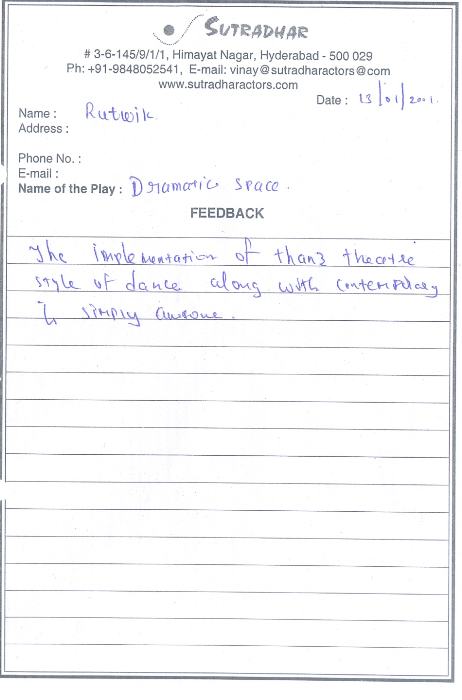 SUTRADHAR
# 3-6-145/9/1/1, Himayat Nagar, Hyderabad - 500 029
Ph: +91-9848052541, E-mail: vinay@sutradharactors@com
www.sutradharactors.com
Date : 13/01/2001.
Name : Rutwik.
Address :
Phone No. :
E-mail :
Name of the Play : Dramatic space.
FEEDBACK
The implementation of than3 theatre
style of dance along with contemporary
is simply awsome.